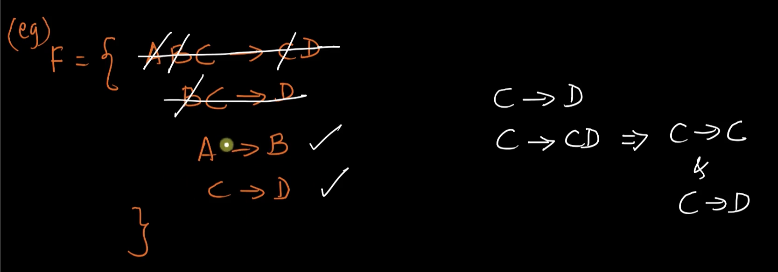 (eg)
F = { ABC → CD
BC → D
A → B ✓
C → D ✓
}
C → D
C → CD ⇒ C → C
&
C → D